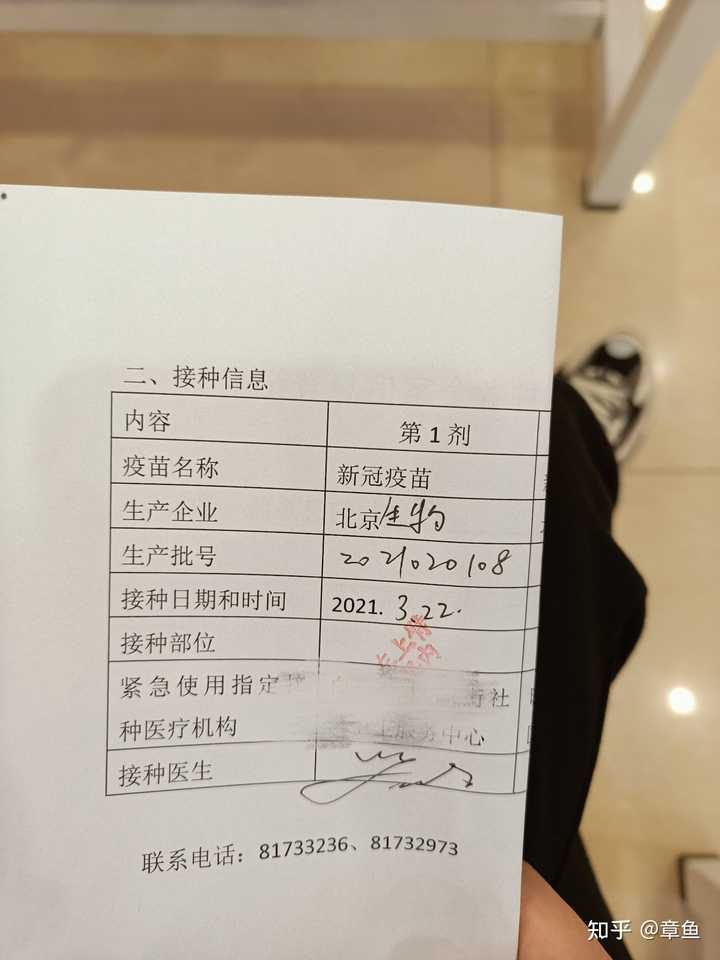 二、接种信息
内容 第1剂
疫苗名称 新冠疫苗
生产企业 北京生物
生产批号 2021020108
接种日期和时间 2021. 3.22.
接种部位
紧急使用指定接 街社
种医疗机构 卫生服务中心
接种医生
联系电话：81733236、81732973
知乎 @章鱼